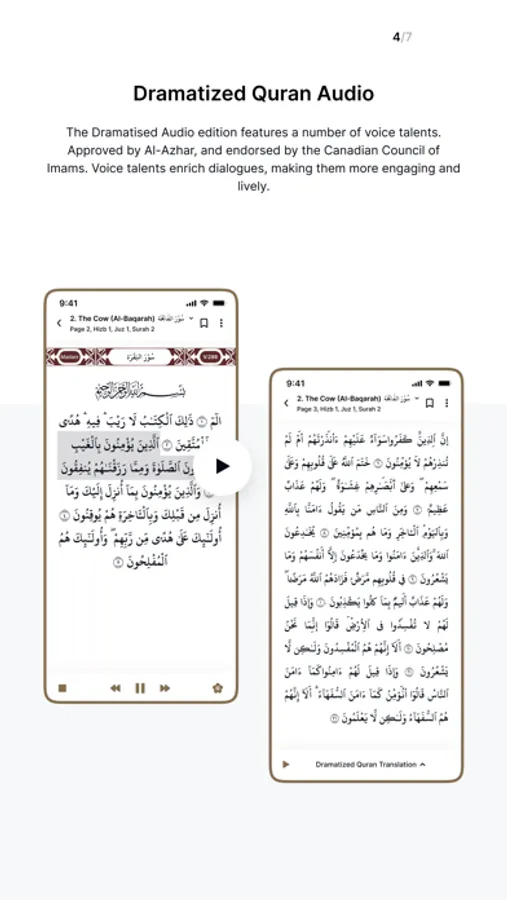 4/7
Dramatized Quran Audio
The Dramatised Audio edition features a number of voice talents.
Approved by Al-Azhar, and endorsed by the Canadian Council of
Imams. Voice talents enrich dialogues, making them more engaging and
lively.
9:41
2. The Cow (Al-Baqarah)
Page 2, Hizb 1, Juz 1, Surah 2
Madani
سُورَةُ البَقَرَة
V:286
الٓمٓ ۝١ ذَٰلِكَ ٱلْكِتَٰبُ لَا رَيْبَ ۛ فِيهِ ۛ هُدًى
ٱلَّذِينَ يُؤْمِنُونَ بِٱلْغَيْبِ
ٱلصَّلَوٰةَ وَمِمَّا رَزَقْنَٰهُمْ يُنفِقُونَ
وَٱلَّذِينَ يُؤْمِنُونَ بِمَآ أُنزِلَ إِلَيْكَ وَمَآ
أُنزِلَ مِن قَبْلِكَ وَبِٱلْءَاخِرَةِ هُمْ يُوقِنُونَ ۝٤
أُو۟لَٰٓئِكَ عَلَىٰ هُدًى مِّن رَّبِّهِمْ ۖ وَأُو۟لَٰٓئِكَ هُمُ
ٱلْمُفْلِحُونَ ۝٥
9:41
2. The Cow (Al-Baqarah)
Page 3, Hizb 1, Juz 1, Surah 2
إِنَّ ٱلَّذِينَ كَفَرُوا۟ سَوَآءٌ عَلَيْهِمْ ءَأَنذَرْتَهُمْ أَمْ لَمْ
تُنذِرْهُمْ لَا يُؤْمِنُونَ ۝٦ خَتَمَ ٱللَّهُ عَلَىٰ قُلُوبِهِمْ وَعَلَىٰ
سَمْعِهِمْ ۖ وَعَلَىٰٓ أَبْصَٰرِهِمْ غِشَٰوَةٌ ۖ وَلَهُمْ عَذَابٌ
عَظِيمٌ ۝٧ وَمِنَ ٱلنَّاسِ مَن يَقُولُ ءَامَنَّا بِٱللَّهِ
وَبِٱلْيَوْمِ ٱلْءَاخِرِ وَمَا هُم بِمُؤْمِنِينَ ۝٨ يُخَٰدِعُونَ
ٱللَّهَ وَٱلَّذِينَ ءَامَنُوا۟ وَمَا يَخْدَعُونَ إِلَّآ أَنفُسَهُمْ وَمَا
يَشْعُرُونَ ۝٩ فِى قُلُوبِهِم مَّرَضٌ فَزَادَهُمُ ٱللَّهُ مَرَضًا ۖ
وَلَهُمْ عَذَابٌ أَلِيمٌۢ بِمَا كَانُوا۟ يَكْذِبُونَ ۝١٠ وَإِذَا قِيلَ
لَهُمْ لَا تُفْسِدُوا۟ فِى ٱلْأَرْضِ قَالُوٓا۟ إِنَّمَا نَحْنُ
مُصْلِحُونَ ۝١١ أَلَآ إِنَّهُمْ هُمُ ٱلْمُفْسِدُونَ وَلَٰكِن لَّا
يَشْعُرُونَ ۝١٢ وَإِذَا قِيلَ لَهُمْ ءَامِنُوا۟ كَمَآ ءَامَنَ
ٱلنَّاسُ قَالُوٓا۟ أَنُؤْمِنُ كَمَآ ءَامَنَ ٱلسُّفَهَآءُ ۗ أَلَآ إِنَّهُمْ
هُمُ ٱلسُّفَهَآءُ وَلَٰكِن لَّا يَعْلَمُونَ ۝١٣
Dramatized Quran Translation